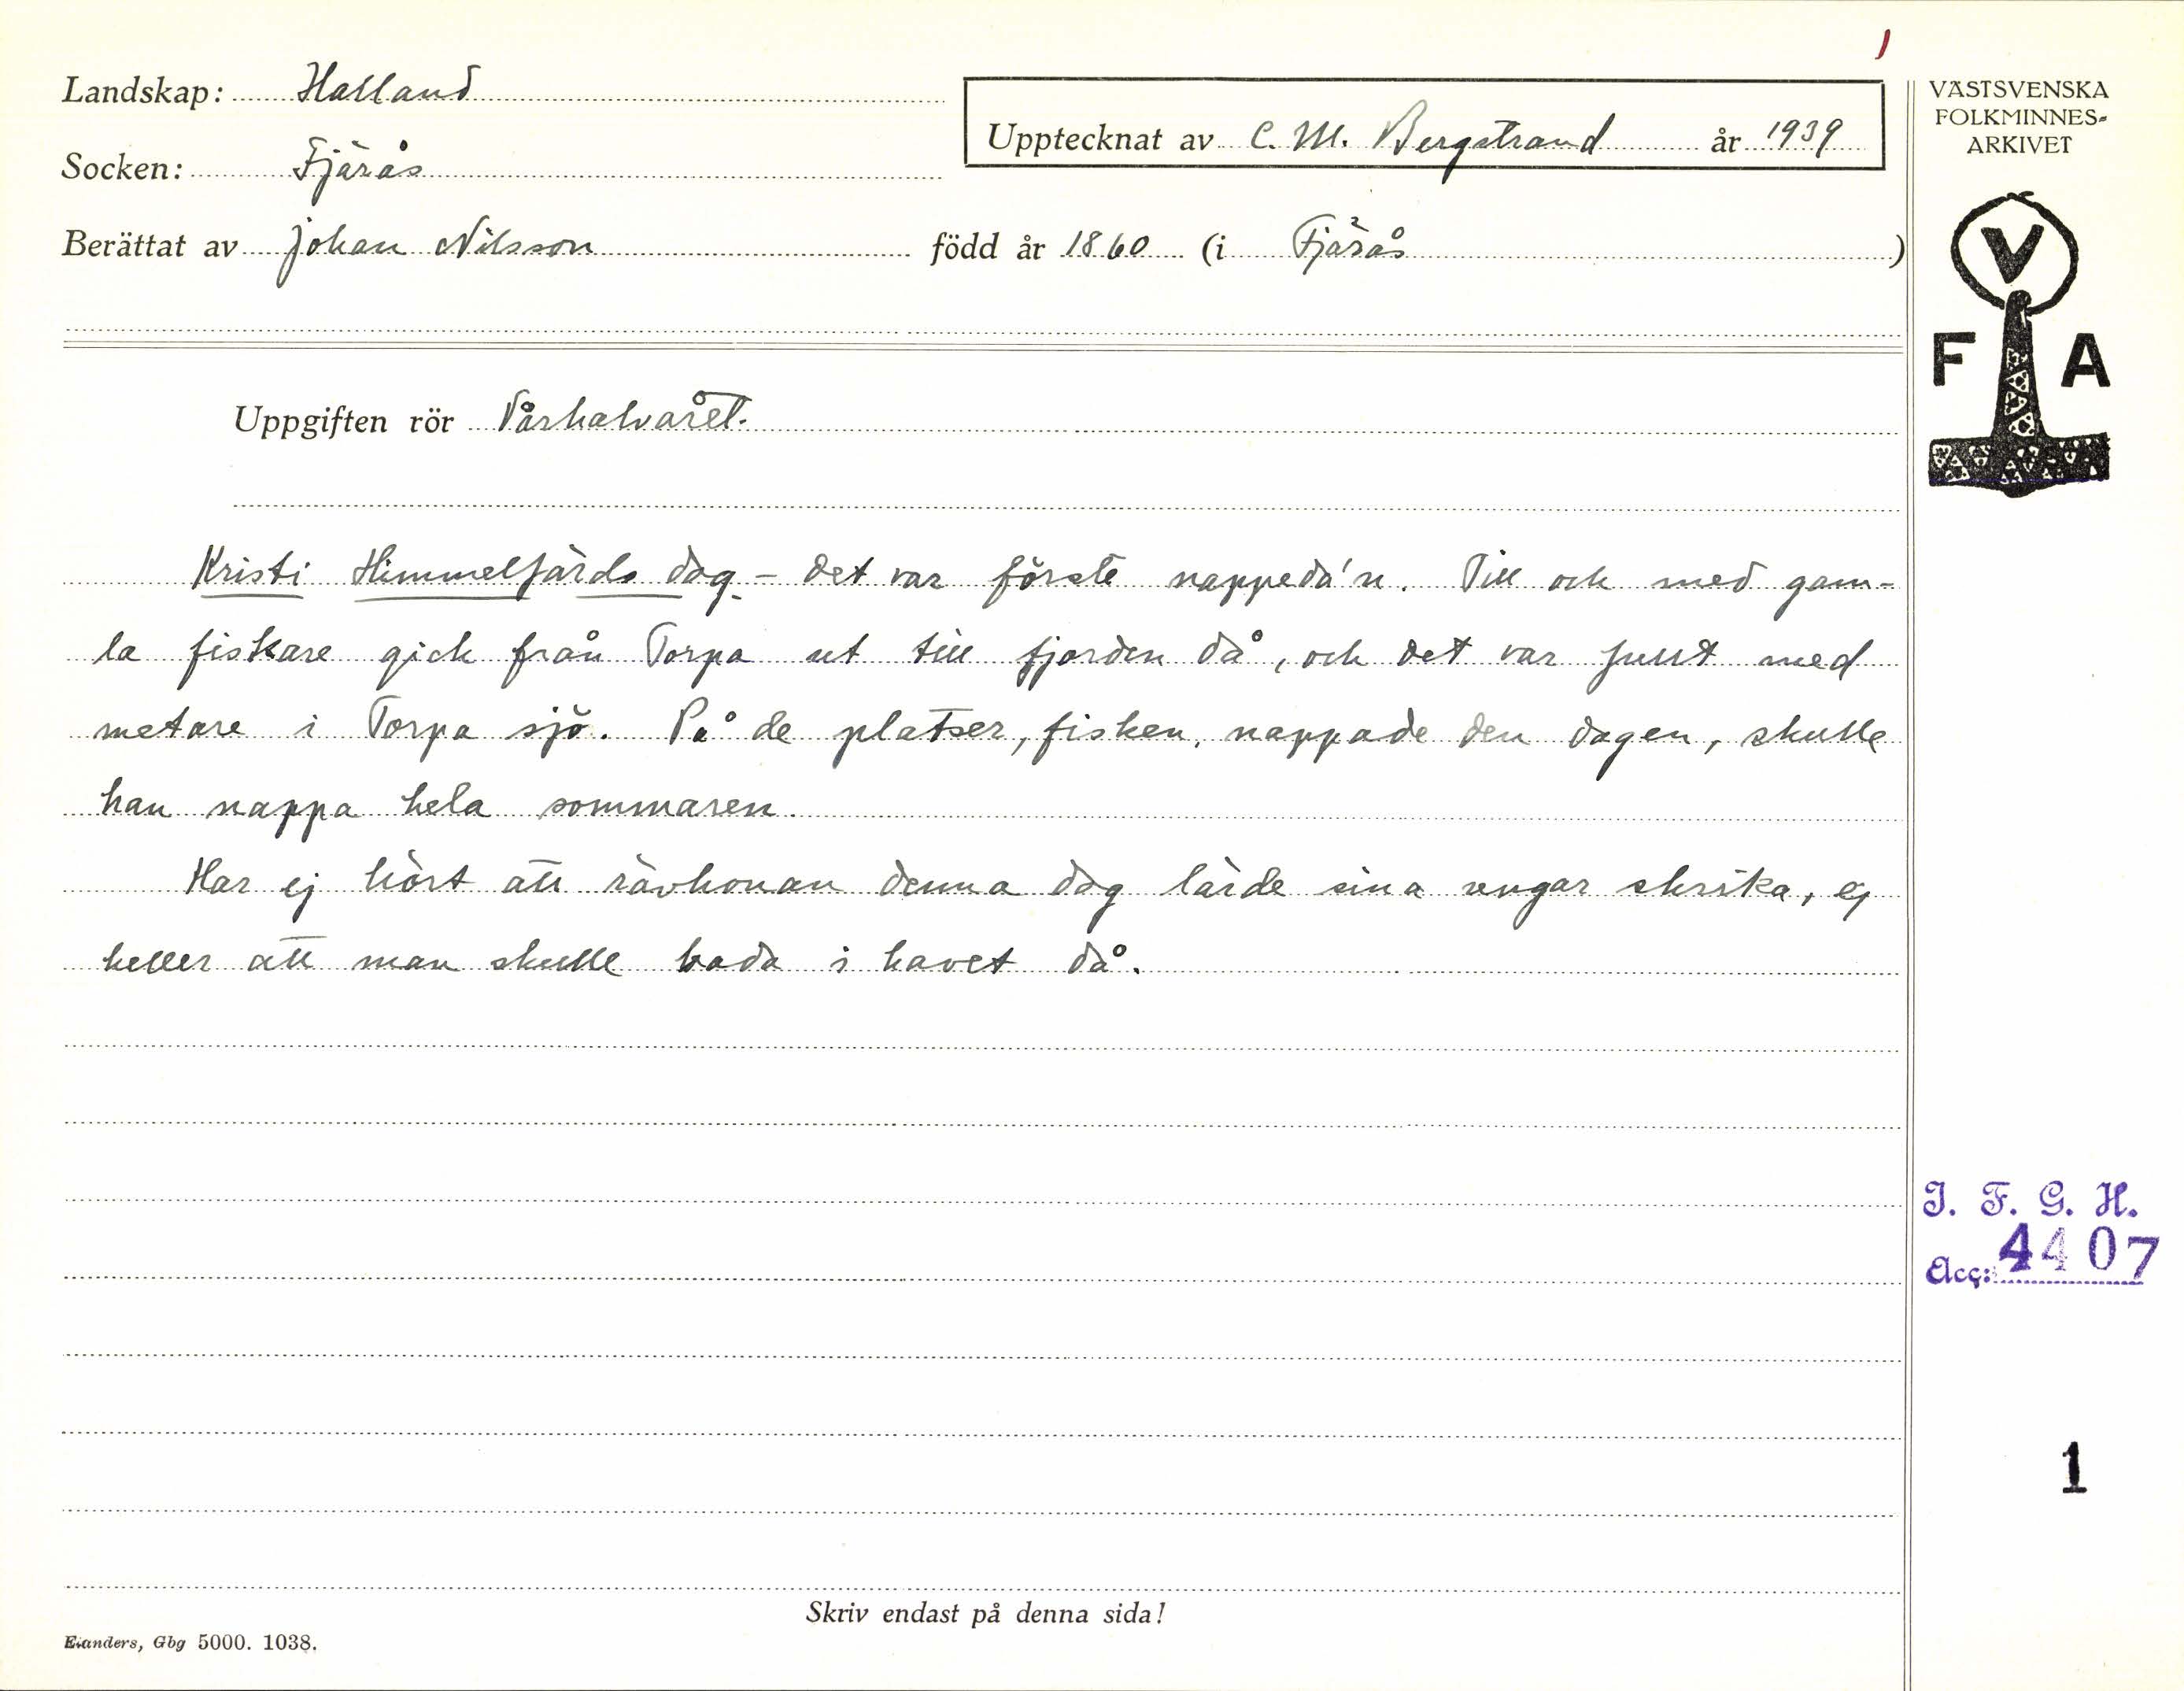 1
Landskap: Halland
Socken: Fjärås
Upptecknat av C. M. Bergstrand år 1939
Berättat av Johan Nilsson född år 1860 (i Fjärås)
Uppgiften rör Vårhalvåret.
Kristi Himmelfärds dag - det var förste nappeda'n. Till och med gam-
la fiskare gick från Torpa ut till fjorden då, och det var fullt med
metare i Torpa sjö. På de platser, fisken, nappade den dagen, skulle
han nappa hela sommaren.
Har ej hört att rävhonan denna dag lärde sina ungar skrika, ej
heller att man skulle bada i havet då.
Skriv endast på denna sida!
Elanders, Gbg 5000. 1038.
VÄSTSVENSKA
FOLKMINNES-
ARKIVET
V
F A
I. F. G. H.
Acc: 4407
1